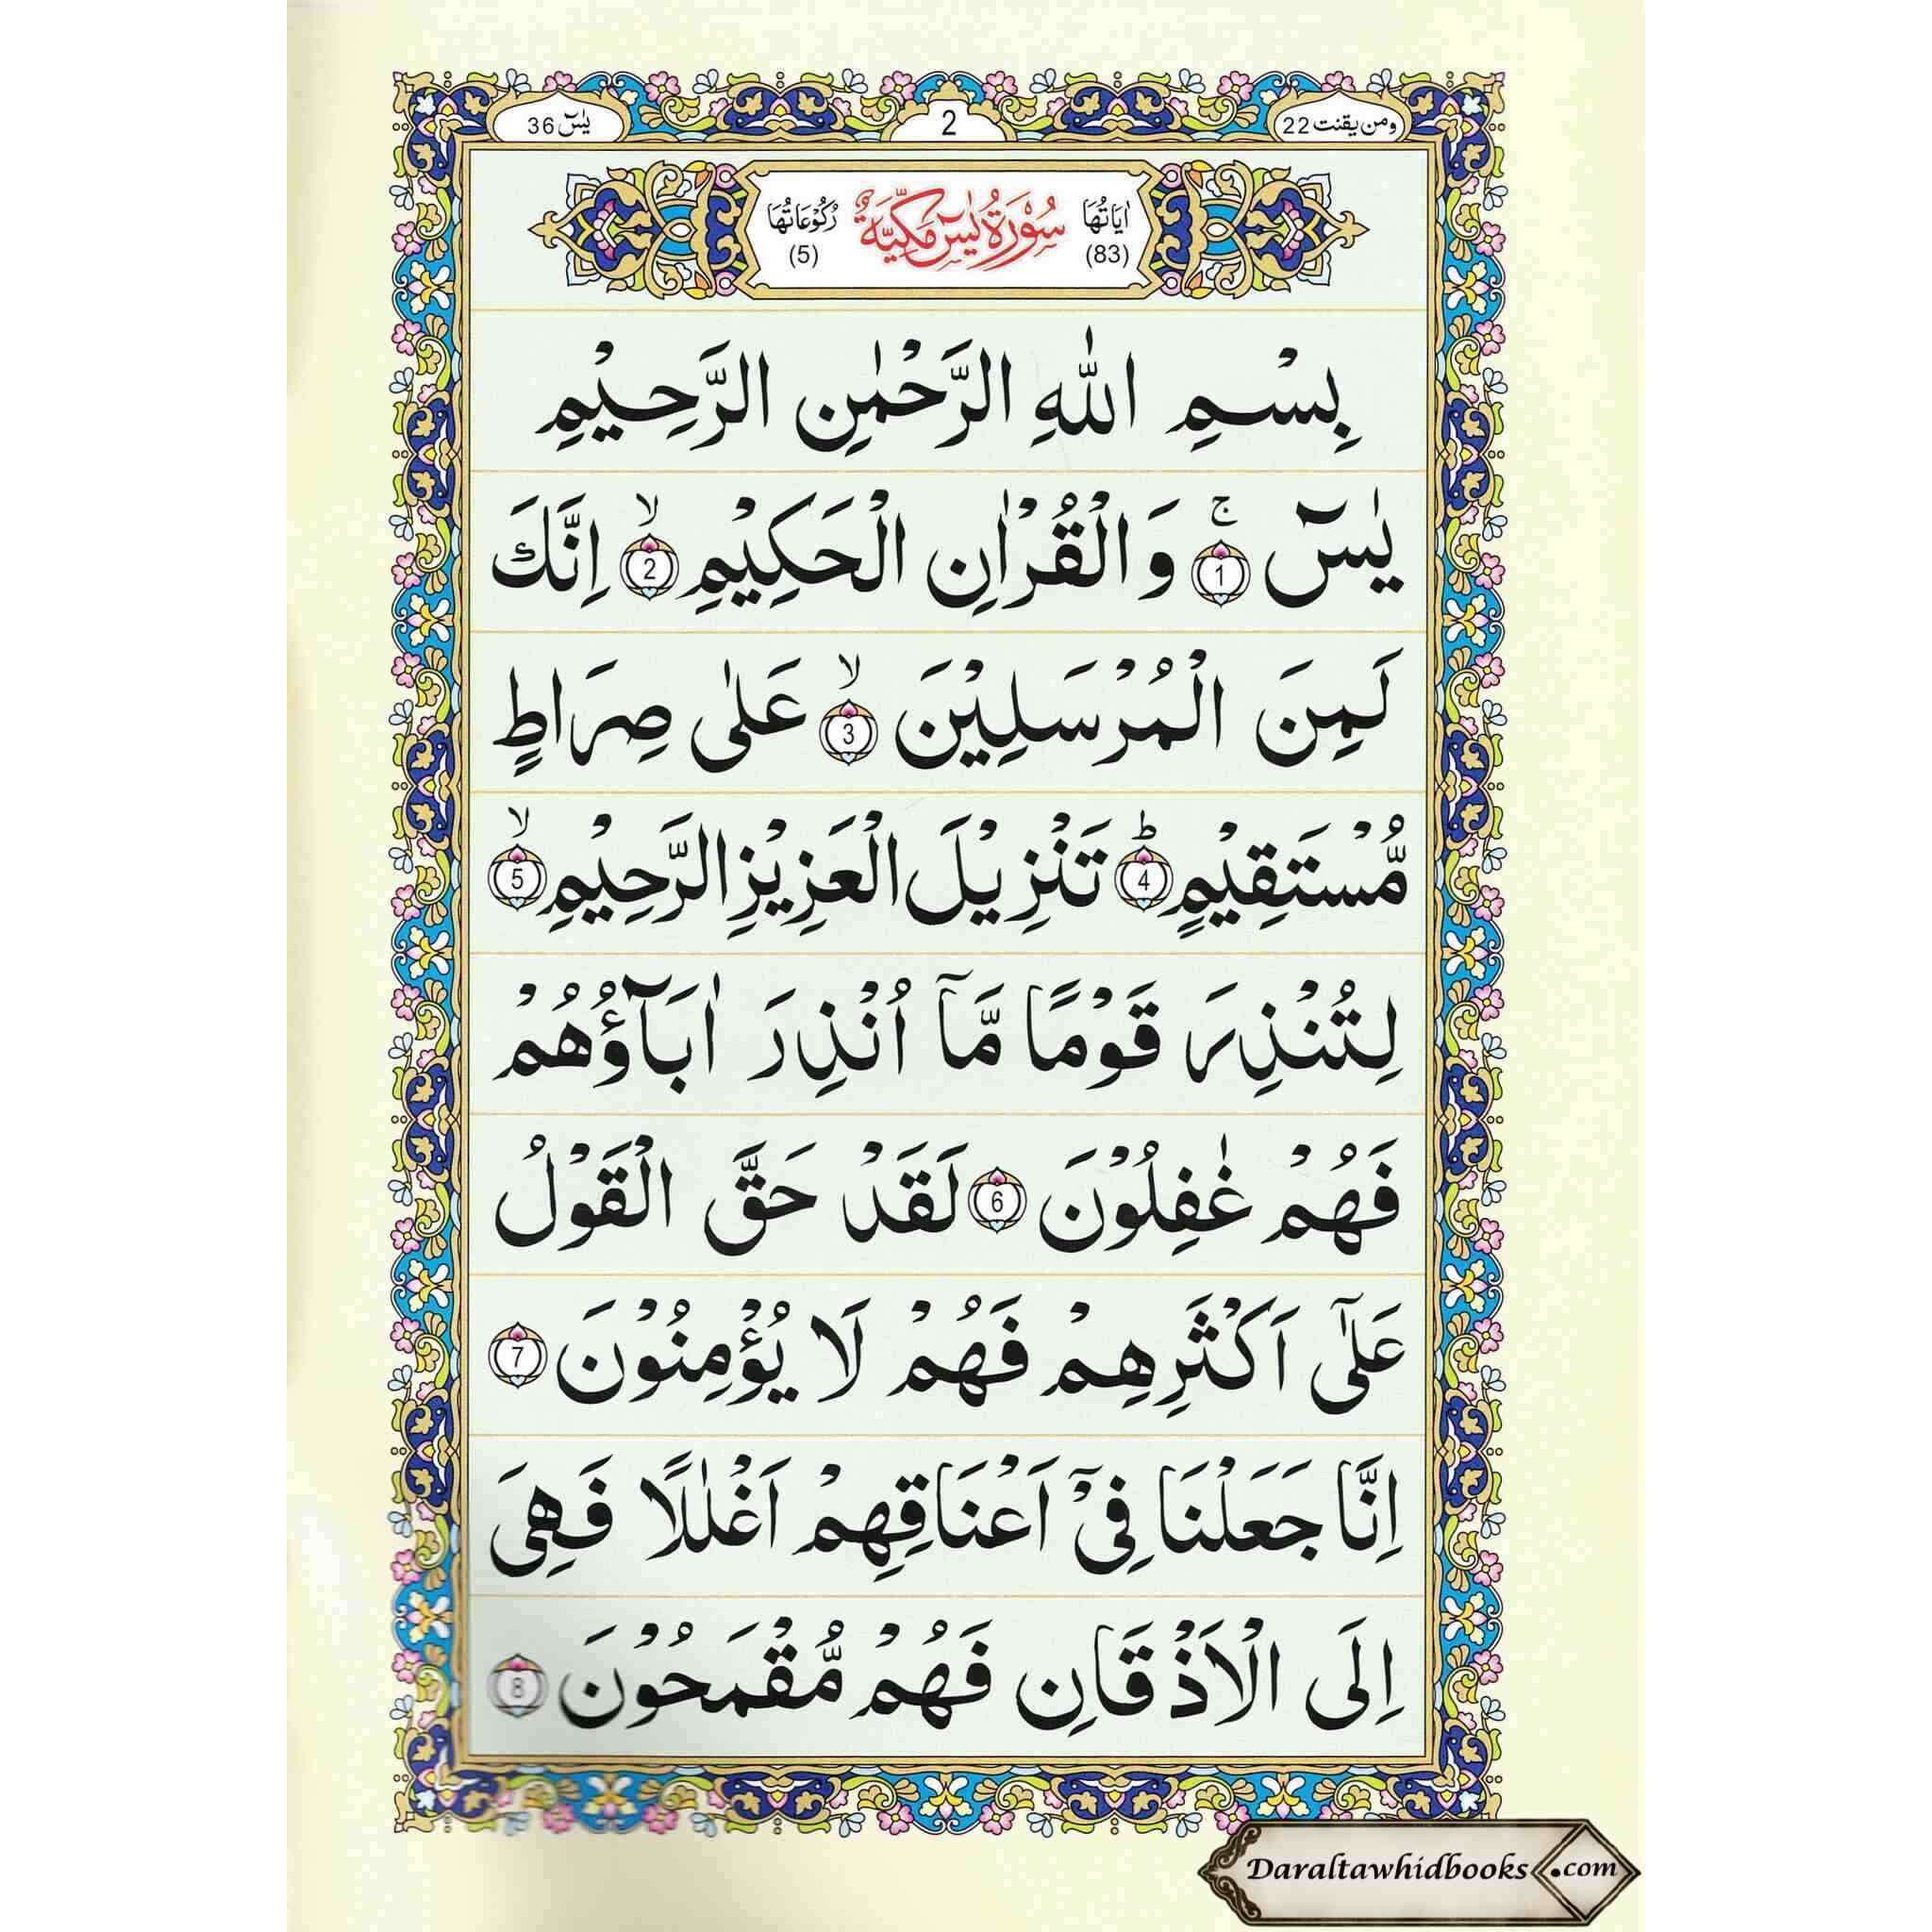 ومن يقنت 22
2
يٰسٓ 36
اٰيَاتُهَا (83)
سُوْرَةُ يٰسٓ مَكِّيَّةٌ
رُكُوْعَاتُهَا (5)
بِسْمِ اللّٰهِ الرَّحْمٰنِ الرَّحِيْمِ
يٰسٓ ۚ 1 وَالْقُرْاٰنِ الْحَكِيْمِ ۙ 2 اِنَّكَ
لَمِنَ الْمُرْسَلِيْنَ ۙ 3 عَلٰى صِرَاطٍ
مُّسْتَقِيْمٍ ؕ 4 تَنْزِيْلَ الْعَزِيْزِ الرَّحِيْمِ ۙ 5
لِتُنْذِرَ قَوْمًا مَّاۤ اُنْذِرَ اٰبَآؤُهُمْ
فَهُمْ غٰفِلُوْنَ 6 لَقَدْ حَقَّ الْقَوْلُ
عَلٰۤى اَكْثَرِهِمْ فَهُمْ لَا يُؤْمِنُوْنَ 7
اِنَّا جَعَلْنَا فِيْۤ اَعْنَاقِهِمْ اَغْلٰلًا فَهِيَ
اِلَى الْاَذْقَانِ فَهُمْ مُّقْمَحُوْنَ 8
Daraltawhidbooks.com